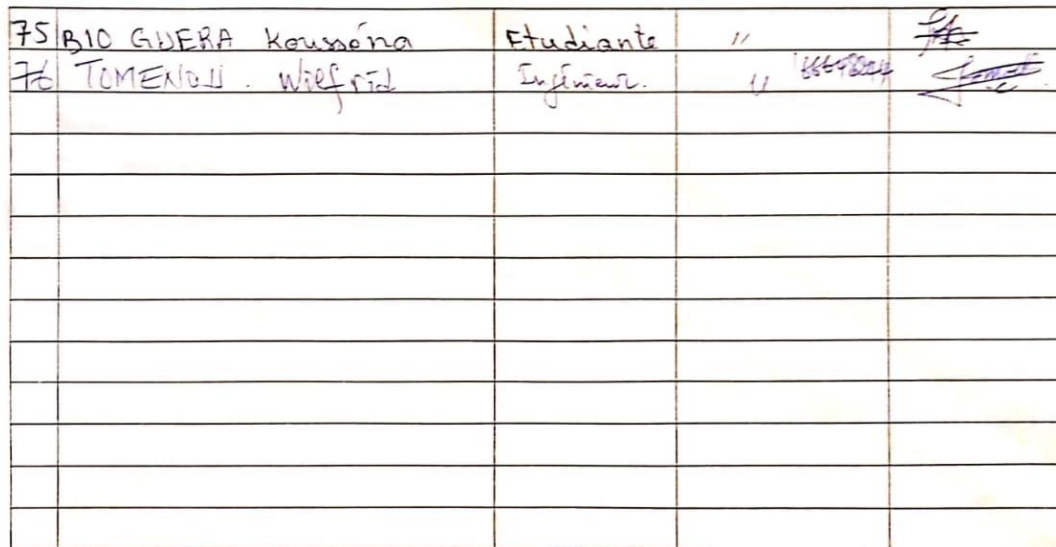 75 BIO GUERA Kousséna Etudiante "
76 TOMENOU. Wilfrid Ingénieur. "